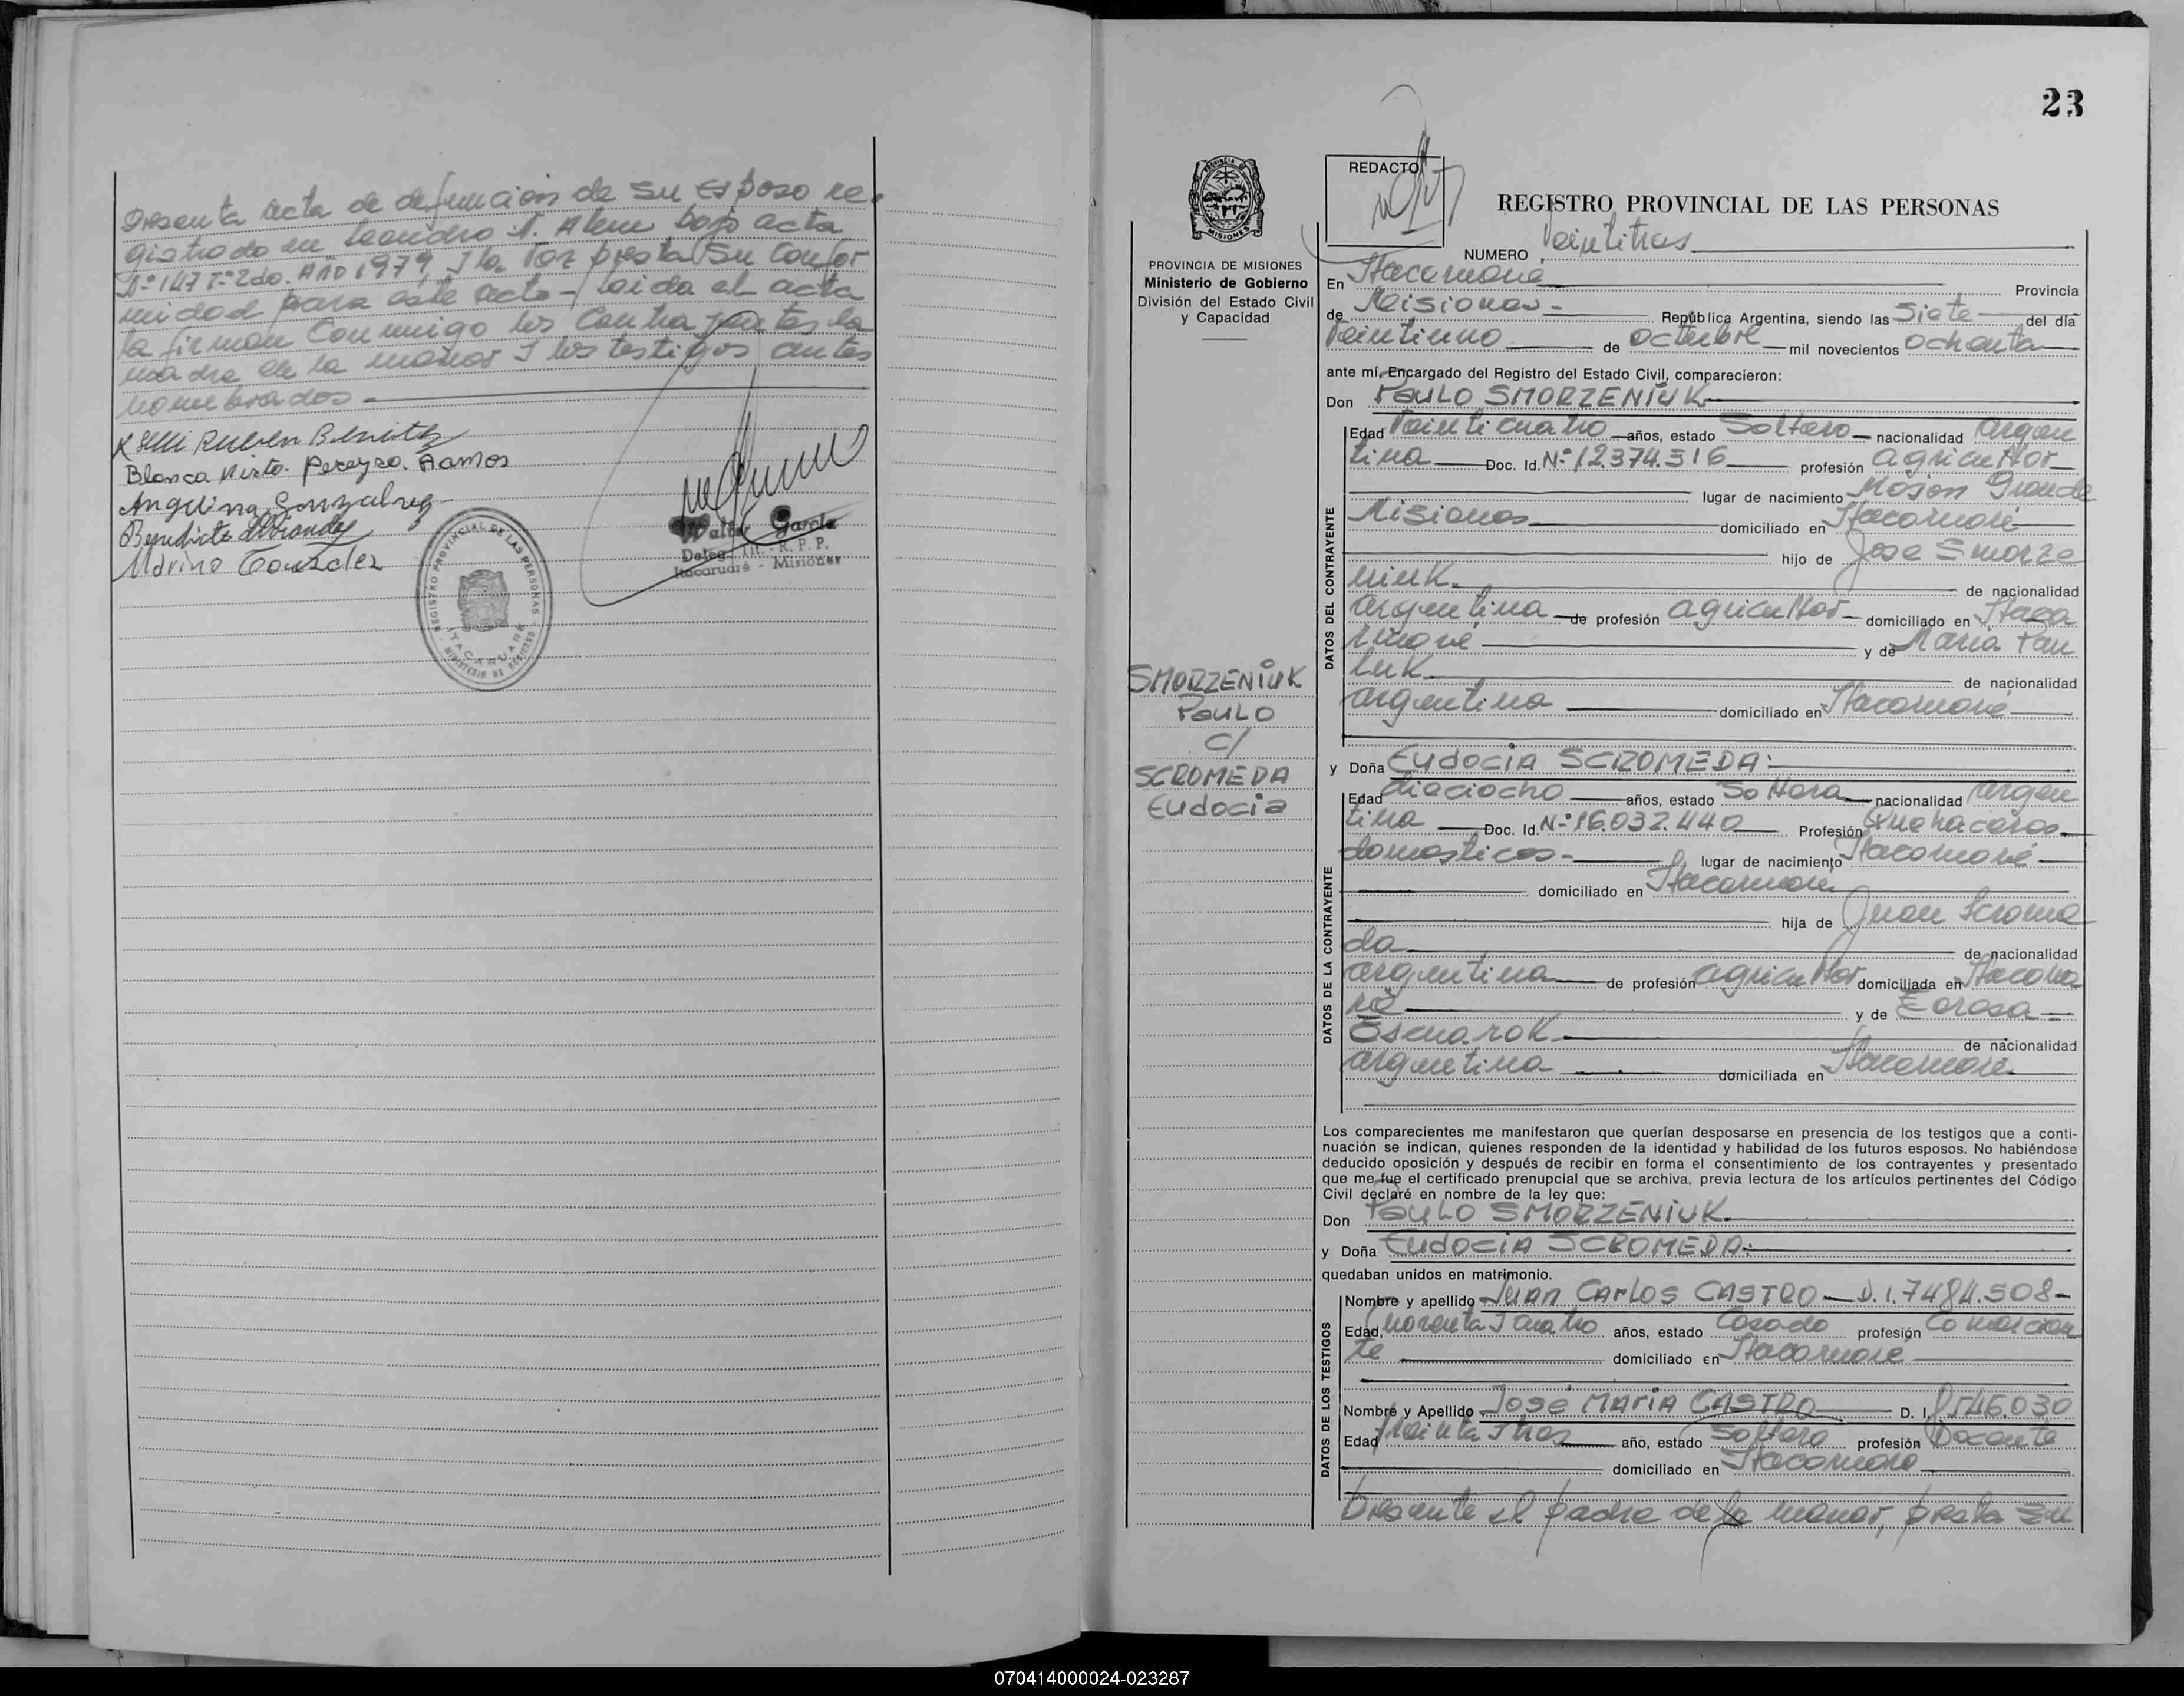 Presenta acta de defunción de su esposo re-
gistrado en Leandro N. Alem bajo acta
Nº 147 Tº 2do. Año 1979, y la vez presta su confor
midad para este acto - Leida el acta
la firman conmigo los contrayentes la
madre de la menor y los testigos antes
nombrados.
Ruben Benitez
Blanca Mirta. Pereyra. Ramos
Angelina Gonzalvez
Marino Gonzalez
REGISTRO PROVINCIAL DE LAS PERSONAS
ITACARUARE
Walter Garcia
Deleg. Tit. - R. P. P.
Itacaruaré - Misiones
23
PROVINCIA DE MISIONES
Ministerio de Gobierno
División del Estado Civil
y Capacidad
SMORZENIUK
PAULO
C/
SCROMEDA
Eudocia
REDACTO
REGISTRO PROVINCIAL DE LAS PERSONAS
NUMERO Veintitres
En Itacaruaré Provincia
de Misiones - República Argentina, siendo las Siete del día
Veintiuno de octubre mil novecientos ochenta
ante mí, Encargado del Registro del Estado Civil, comparecieron:
Don PAULO SMORZENIUK
DATOS DEL CONTRAYENTE
Edad Veinticuatro años, estado Soltero nacionalidad Argen
tina Doc. Id. Nº 12.374.316 profesión agricultor
lugar de nacimiento Mojon Grande
Misiones domiciliado en Itacaruaré
hijo de Jose Smorze
niuk. de nacionalidad
argentina de profesión agricultor domiciliado en Itaca
ruaré y de Maria Pau
luk de nacionalidad
argentina domiciliado en Itacaruaré
y Doña Eudocia SCROMEDA:
DATOS DE LA CONTRAYENTE
Edad dieciocho años, estado Soltera nacionalidad Argen
tina Doc. Id. Nº 16.032.440 Profesión Quehaceres
domesticos - lugar de nacimiento Itacaruaré
domiciliado en Itacaruaré
hija de Juan Scrome
da de nacionalidad
argentina de profesión agricultor domiciliada en Itacarua
ré y de Eorosa
de nacionalidad
argentina domiciliada en Itacaruaré
Los comparecientes me manifestaron que querían desposarse en presencia de los testigos que a conti-
nuación se indican, quienes responden de la identidad y habilidad de los futuros esposos. No habiéndose
deducido oposición y después de recibir en forma el consentimiento de los contrayentes y presentado
que me fue el certificado prenupcial que se archiva, previa lectura de los artículos pertinentes del Código
Civil declaré en nombre de la ley que:
Don PAULO SMORZENIUK
y Doña Eudocia SCROMEDA:
quedaban unidos en matrimonio.
DATOS DE LOS TESTIGOS
Nombre y apellido Juan Carlos CASTRO D.I. 7484.508-
Edad, años, estado Casado profesión Comercian
te domiciliado en Itacaruaré
Nombre y Apellido José Maria CASTRO D. I. 8.546.030
Edad treinta y tres año, estado Soltero profesión Docente
domiciliado en Itacaruaré
Presente el padre de la menor, presta su
070414000024-023287